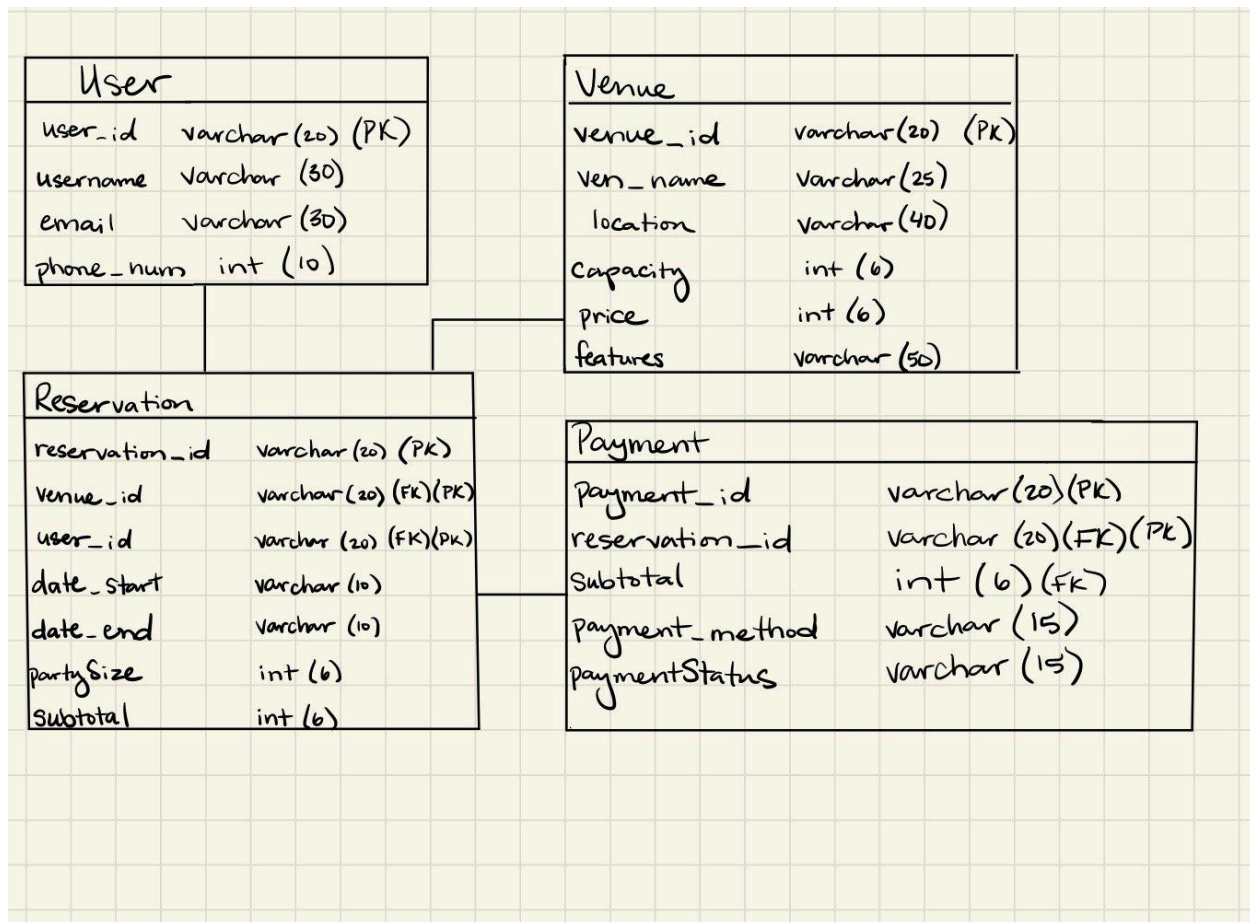 User
user_id varchar(20) (PK)
username varchar (30)
email varchar (30)
phone_num int (10)
Venue
venue_id varchar(20) (PK)
ven_name varchar(25)
location varchar(40)
capacity int (6)
price int (6)
features varchar (50)
Reservation
reservation_id varchar(20) (PK)
venue_id varchar(20) (FK)(PK)
user_id varchar (20) (FK)(PK)
date_start varchar (10)
date_end varchar (10)
partySize int (6)
subtotal int (6)
Payment
payment_id varchar(20)(PK)
reservation_id varchar (20)(FK)(PK)
subtotal int (6)(FK)
payment_method varchar (15)
paymentStatus varchar (15)